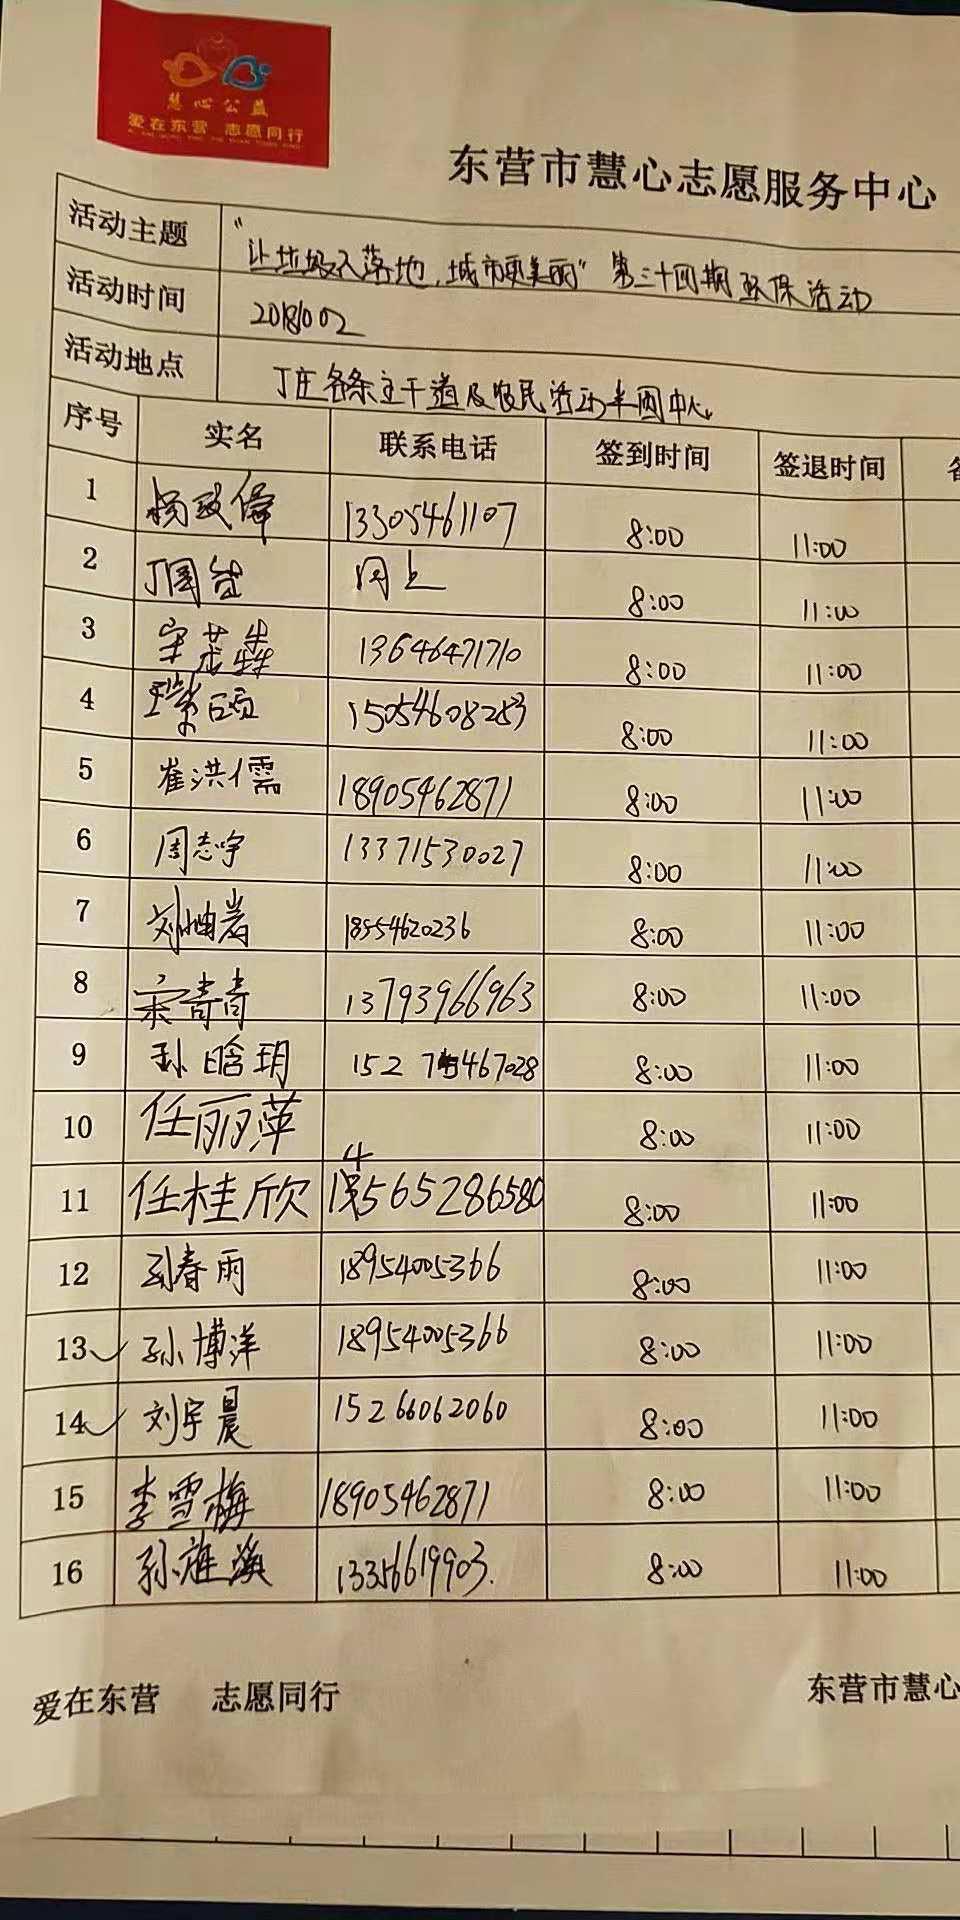 慧心公益
爱在东营 志愿同行
东营市慧心志愿服务中心
活动主题 "让垃圾不落地,城市更美丽"第三十四期环保活动
活动时间 20181002
活动地点 丁庄各条主干道及农民活动乐园中心
序号 实名 联系电话 签到时间 签退时间
1 杨政伟 13305461107 8:00 11:00
2 丁国台 同上 8:00 11:00
3 13646471710 8:00 11:00
4 15054608283 8:00 11:00
5 崔洪儒 18905462871 8:00 11:00
6 周志宇 13371530027 8:00 11:00
7 刘岩 18554620236 8:00 11:00
8 宋青青 13793966963 8:00 11:00
9 孙晗玥 8:00 11:00
10 任丽萍 8:00 11:00
11 任桂欣 8:00 11:00
12 孙春雨 18954005366 8:00 11:00
13 孙博洋 18954005366 8:00 11:00
14 刘宇晨 15266062060 8:00 11:00
15 李雪梅 18905462871 8:00 11:00
16 孙维海 13356619903. 8:00 11:00
爱在东营 志愿同行 东营市慧心